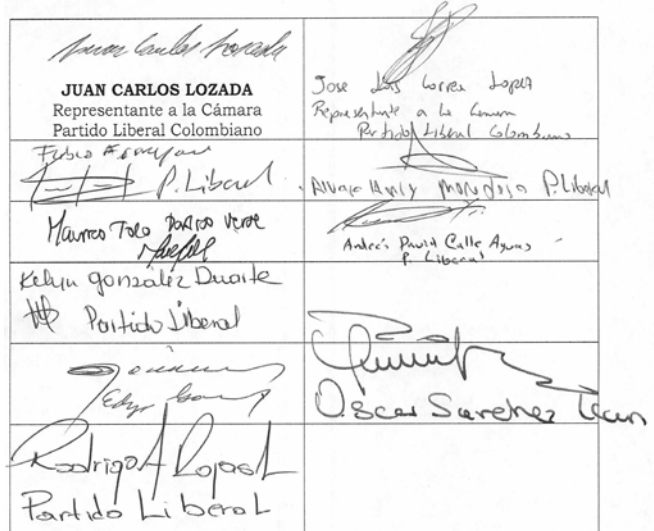 Juan Carlos Lozada
JUAN CARLOS LOZADA
Representante a la Cámara
Partido Liberal Colombiano
Jose Luis Correa Lopez
Representante a la Camara
Partido Liberal Colombiano
P. Liberal
Alvaro Mendoza P. Liberal
Mauricio Toro Partido Verde
Andrés David Calle Aguas
P. Liberal
Kelyn gonzález Duarte
Partido Liberal
Oscar Sanchez León
Rodrigo Rojas L
Partido Liberal